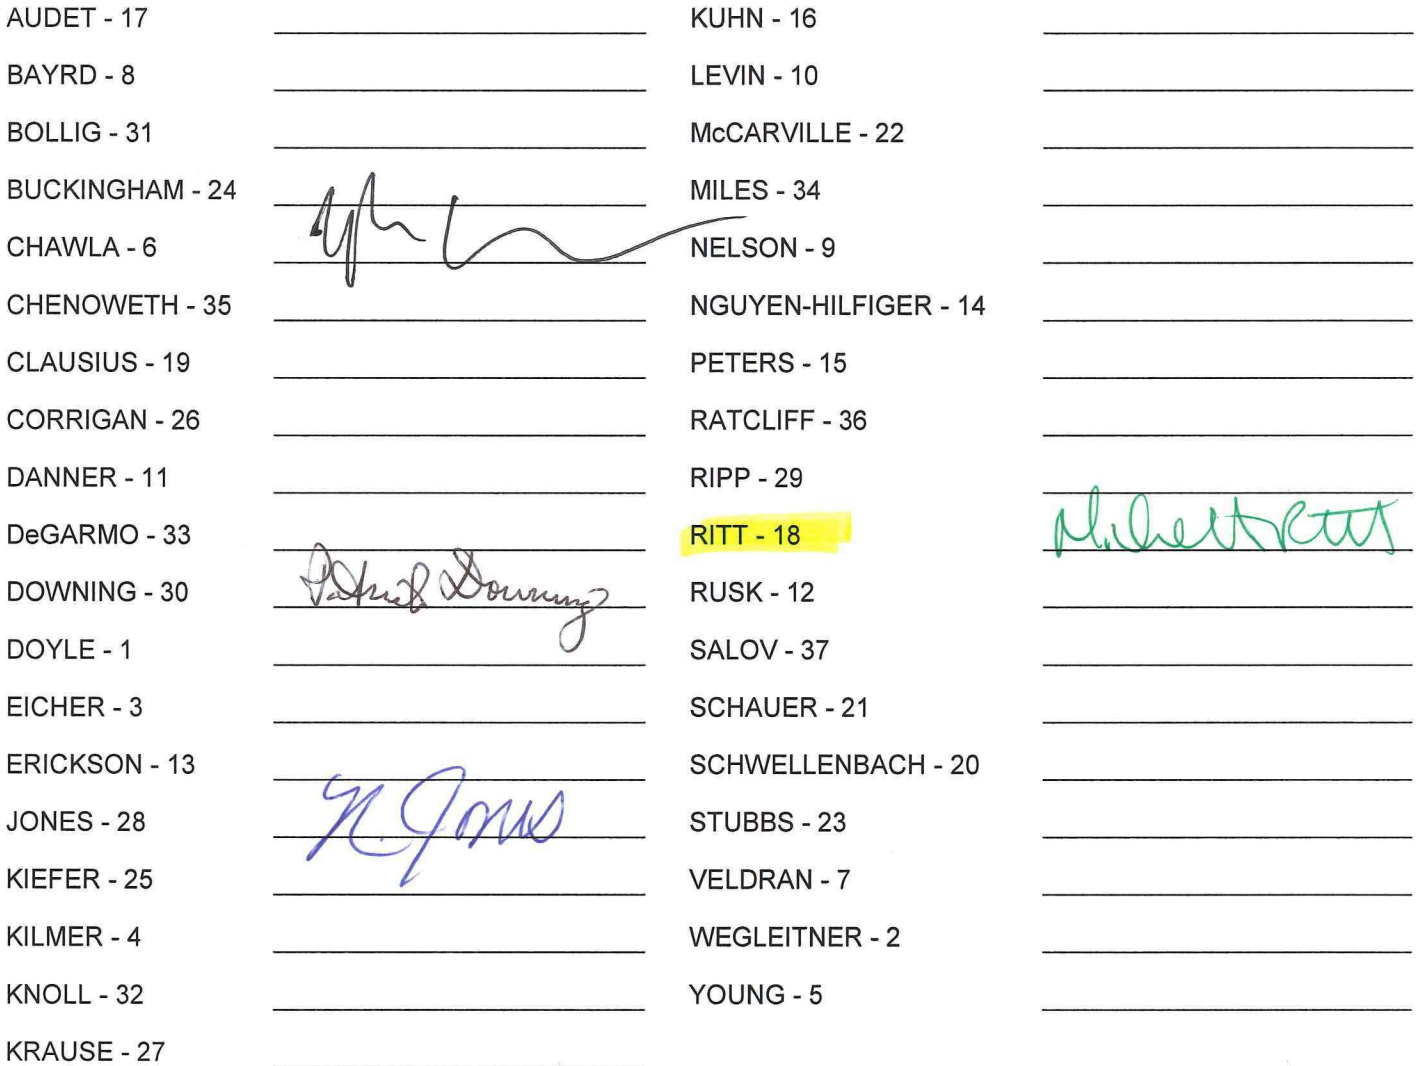 AUDET - 17
BAYRD - 8
BOLLIG - 31
BUCKINGHAM - 24
CHAWLA - 6
CHENOWETH - 35
CLAUSIUS - 19
CORRIGAN - 26
DANNER - 11
DeGARMO - 33
DOWNING - 30 Patrick Downing
DOYLE - 1
EICHER - 3
ERICKSON - 13
JONES - 28 N. Jones
KIEFER - 25
KILMER - 4
KNOLL - 32
KRAUSE - 27
KUHN - 16
LEVIN - 10
McCARVILLE - 22
MILES - 34
NELSON - 9
NGUYEN-HILFIGER - 14
PETERS - 15
RATCLIFF - 36
RIPP - 29
RITT - 18 Ritt
RUSK - 12
SALOV - 37
SCHAUER - 21
SCHWELLENBACH - 20
STUBBS - 23
VELDRAN - 7
WEGLEITNER - 2
YOUNG - 5